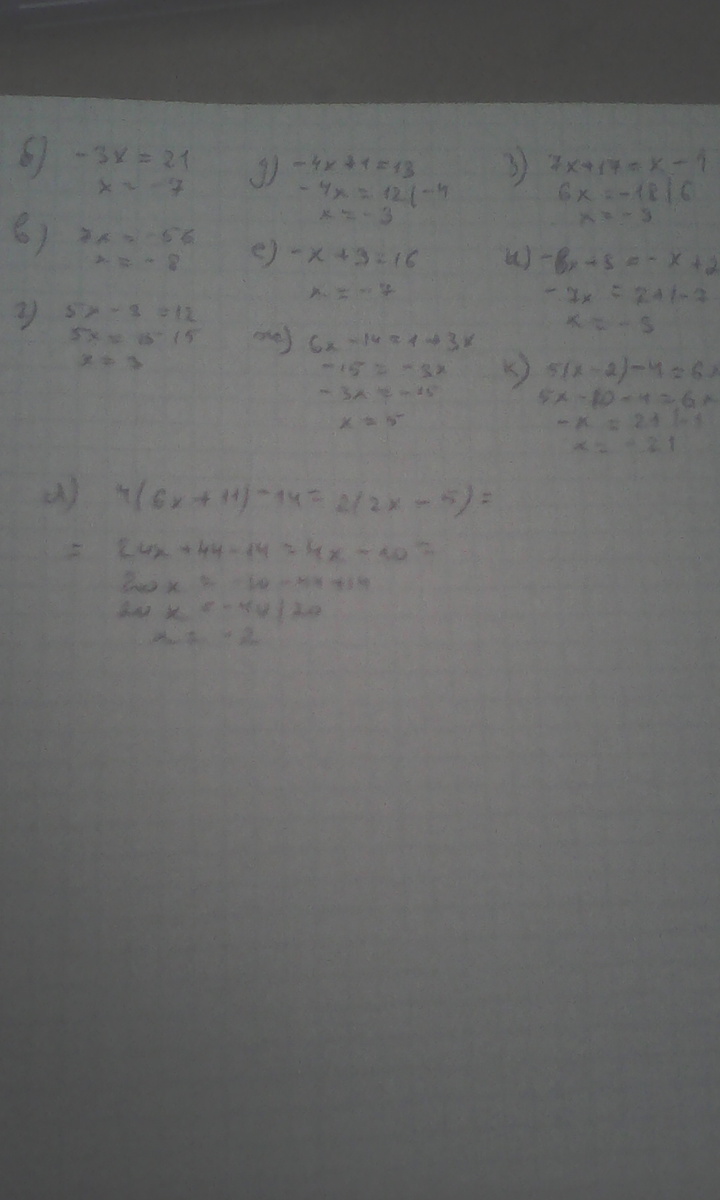 б) -3x = 21
x = -7
в) 7x = -56
x = -8
г) 5x - 3 = 12
5x = 15
x = 3
д) -4x + 1 = 13
-4x = 12 | -4
x = -3
е) -x + 9 = 16
x = -7
ж) 6x - 14 = 1 + 3x
-15 = -3x
-3x = -15
x = 5
з) 7x + 17 = x - 1
6x = -18 | 6
x = -3
и) -8x + 3 = -x + 2
-7x = 21 | -7
x = -3
к) 5(x - 2) - 4 = 6x
5x - 10 - 4 = 6x
-x = 21 | -1
x = -21
л) 4(6x + 11) - 14 = 2(2x - 5) =
= 24x + 44 - 14 = 4x - 10 =
20x = -10 - 44 + 14
20x = -40 | 20
x = -2